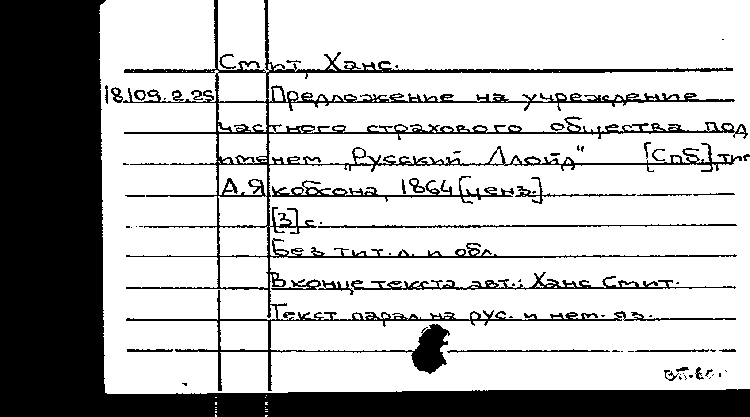 Смит, Ханс.
18.109.2.25 Предложение на учреждение
частного страхового общества под
именем „Русский Ллойд“ [Спб.], тип.
А. Якобсона, 1864 [ценз.].
[3] с.
Без тит. л. и обл.
В конце текста авт.: Ханс Смит.
Текст парал. на рус. и нем. яз.